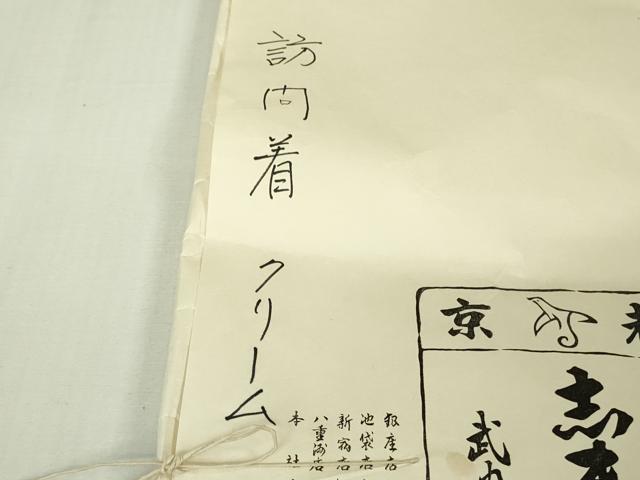 訪問着 クリーム
京
志
武
銀座店
池袋店
新宿店
八重洲店
本社